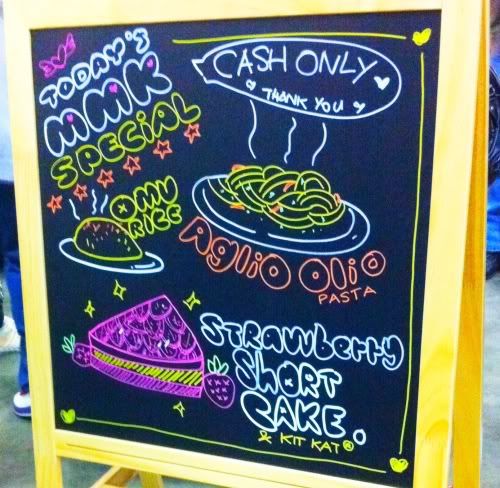 TODAY'S
MMK
SPECiAL
CASH ONLY
THANK YOU
OMU
RICE
Aglio Olio
PASTA
STRAWberry
SHORT
CAKE.
& KIT KAT®